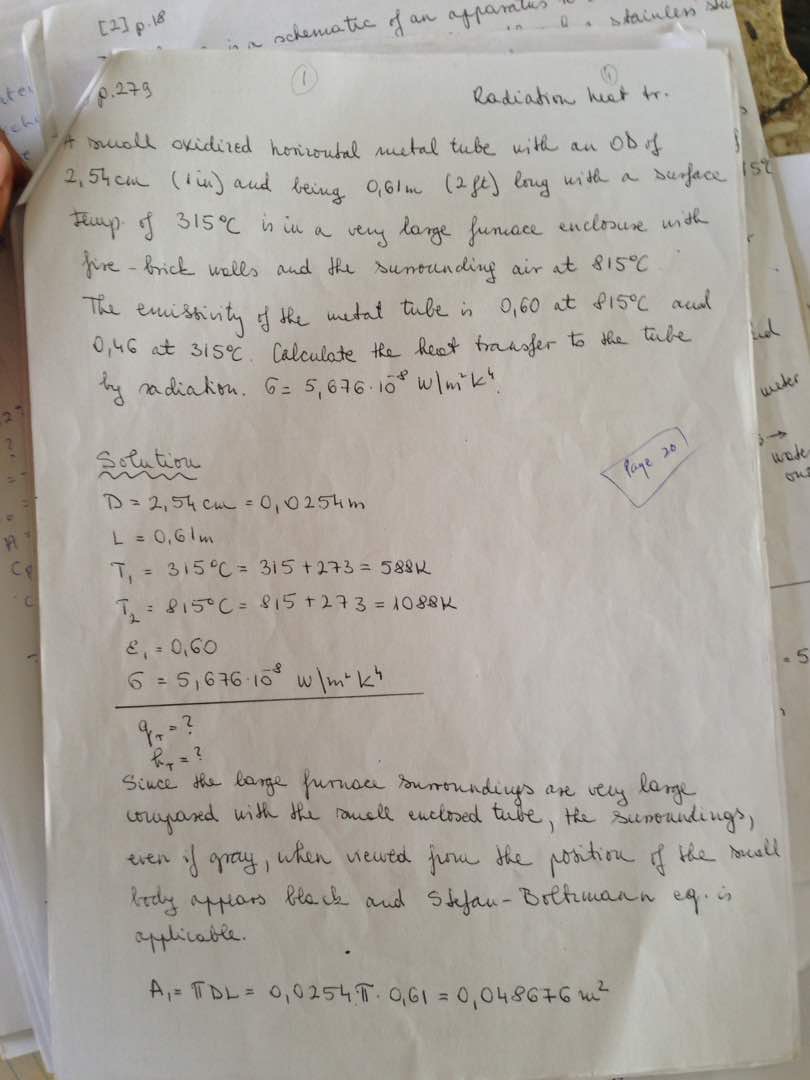 [2] p.18
is a schematic of an apparatus
a stainless
p.279
1
4
Radiation heat tr.
A small oxidized horizontal metal tube with an OD of
2,54 cm (1 in) and being 0,61 m (2 ft) long with a surface
temp. of 315°C is in a very large furnace enclosure with
fire-brick walls and the surrounding air at 815°C.
The emissivity of the metal tube is 0,60 at 815°C and
0,46 at 315°C. Calculate the heat transfer to the tube
by radiation. σ = 5,676·10⁻⁸ W/m²K⁴.
Page 20
Solution
D = 2,54 cm = 0,0254 m
L = 0,61 m
T₁ = 315°C = 315 + 273 = 588K
T₂ = 815°C = 815 + 273 = 1088K
ε₁ = 0,60
σ = 5,676·10⁻⁸ W/m²K⁴
q_T = ?
h_T = ?
Since the large furnace surroundings are very large
compared with the small enclosed tube, the surroundings,
even if gray, when viewed from the position of the small
body appears black and Stefan-Boltzmann eq. is
applicable.
A₁ = πDL = 0,0254.π·0,61 = 0,048676 m²
meter
= 5